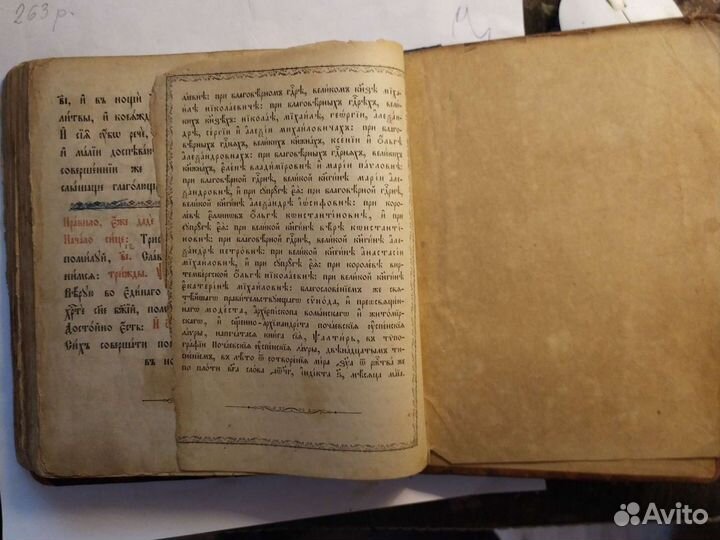 263 р.
ѣе, и въ нощи
литвы, и коважд
И сїѧ оубѡ рече,
и малїи доспѣва
совершеннїи же
слышаще глаголющ
Правило, еже даде
Начало сице: Трис
помилуй, в҃і. Слав
нимсѧ: трижды.
Вѣрую во единаго
хр҃те сн҃е бж҃їй, пом
Достойно есть: И с
Сихъ совершати по
въ но
лаевнѣ: при благовѣрномъ гд҃рѣ, великомъ кн҃зѣ міха
илѣ николаевичѣ: при благовѣрныхъ гд҃рѣхъ, велик
ихъ кн҃зѣхъ: николаѣ, міхаилѣ, георгіи, алеѯан
дрѣ, сергіи и алеѯіи михайловичахъ: при благо
вѣрныхъ гд҃рынѧхъ, великихъ кнѧжнахъ, ѯеніи и ольгѣ
алеѯандровнахъ: при благовѣрныхъ гд҃рынѧхъ, великихъ
кнѧжнахъ, еленѣ владиміровнѣ и маріи павловнѣ:
при благовѣрной гд҃рынѣ, великой кн҃гинѣ маріи але
ѯандровнѣ, и при супругѣ еѧ: при благовѣрной гд҃рынѣ,
великой кн҃гинѣ алеѯандрѣ іѡсифовнѣ: при коро
лѣвѣ еллиновъ ольгѣ кѡнстантіновнѣ, и при
супругѣ еѧ: при великой кн҃гинѣ вѣрѣ кѡнстантіно
внѣ: при благовѣрной гд҃рынѣ, великой кн҃гинѣ але
ѯандрѣ петровнѣ: при великой кн҃гинѣ анастасіи
михайловнѣ, и при супругѣ еѧ: при королѣвѣ вир
тембергской ольгѣ николаевнѣ: при великой кн҃гинѣ
екатерінѣ міхайловнѣ: благословенїемъ же свѧ
тѣйшагѡ правительствующагѡ сѵнода, и преосвѧщен
нагѡ модеста, архіепіскопа волынскагѡ и житомір
скагѡ, и сщ҃енно-архімандріта почаевскїѧ оуспенскїѧ
лаѵры, напечатасѧ книга сїѧ, ѱалтирь, въ тѵпо
графїи почаевскїѧ оуспенскїѧ лаѵры, двѣнадцатымъ ти
сненїемъ, въ лѣто ѿ сотворенїѧ міра ѿ рж҃тва же
по плоти бг҃а слова индікта мѣсѧца маїа.
Avito